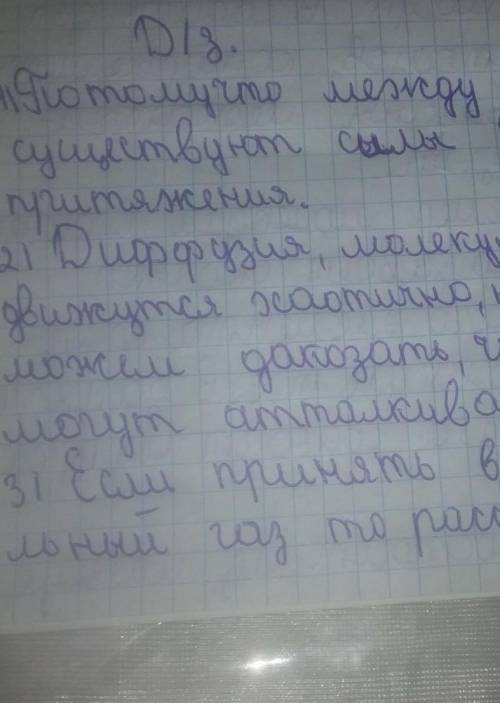 Д/з.
1) Потомучто между
существуют силы
притяжения.
2) Диффузия, молеку
движутся хаотично,
можем дакозать, ч
могут атталкива
3) Если принять в
льный газ то расс